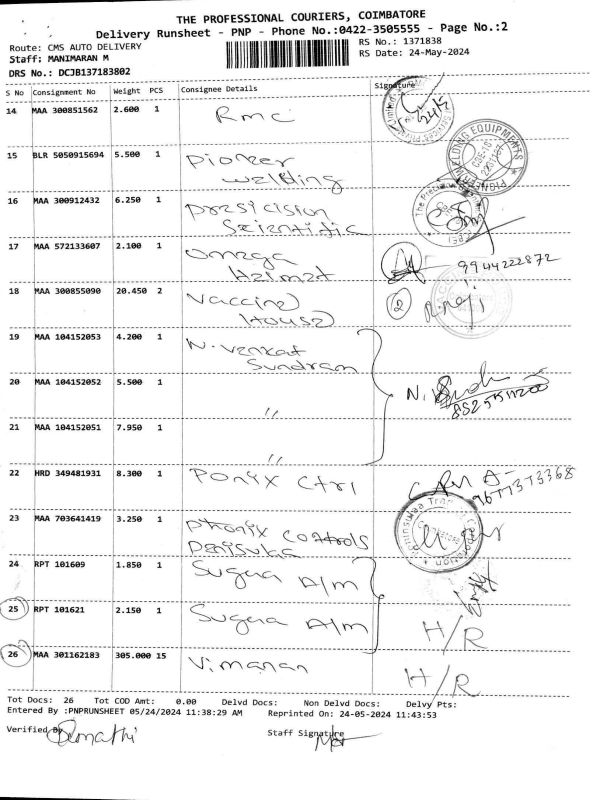 THE PROFESSIONAL COURIERS, COIMBATORE
Delivery Runsheet - PNP - Phone No.:0422-3505555 - Page No.:2
Route: CMS AUTO DELIVERY
RS No.: 1371838
Staff: MANIMARAN M
RS Date: 24-May-2024
DRS No.: DCJB137183802
S No Consignment No Weight PCS Consignee Details Signature
14 MAA 300851562 2.600 1 Rmc
15 BLR 5050915694 5.500 1 Pioneer
welding
PIONEER WELDING EQUIPMENTS
16 MAA 300912432 6.250 1 presicision
Scientific
17 MAA 572133607 2.100 1 omega
Helmet 9944222872
18 MAA 300855090 20.450 2 Vaccine
House
2
19 MAA 104152053 4.200 1 N. Venkat
Sundram
20 MAA 104152052 5.500 1 "
21 MAA 104152051 7.950 1 "
22 HRD 349481931 8.300 1 Ponix Ctrl
23 MAA 703641419 3.250 1 Phonix Controls
Penisula
24 RPT 101609 1.850 1 Suguna A/m
25 RPT 101621 2.150 1 Suguna A/m H/R
26 MAA 301162183 305.000 15 Vimanan H/R
Tot Docs: 26 Tot COD Amt: 0.00 Delvd Docs: Non Delvd Docs: Delvy Pts:
Entered By :PNPRUNSHEET 05/24/2024 11:38:29 AM Reprinted On: 24-05-2024 11:43:53
Verified By
Staff Signature